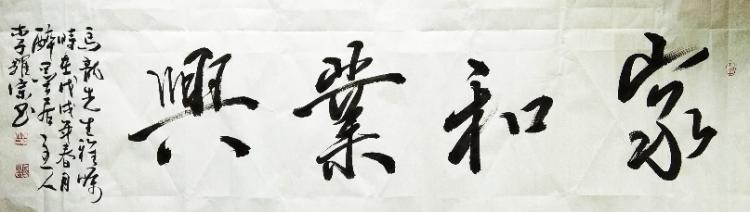 家和業興
馬龍先生雅嘱
時在戊戌年春月
醉墨居主人
李耀宗书